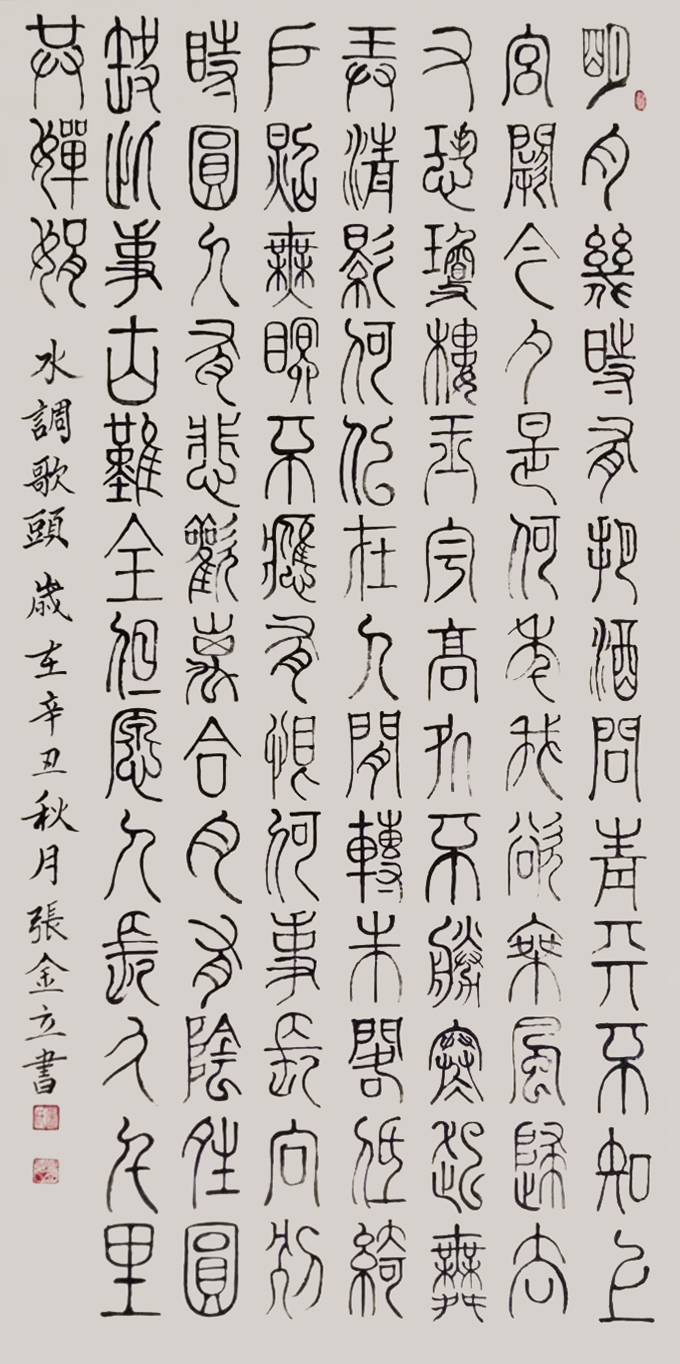 明月幾時有把酒問青天不知上
宮闕今夕是何年我欲乘風歸去
又恐瓊樓玉宇高處不勝寒起舞
弄清影何似在人間轉朱閣低綺
戶照無眠不應有恨何事長向別
時圓人有悲歡离合月有陰晴圓
缺此事古難全但愿人長久千里
共嬋娟
水調歌頭 歲在辛丑秋月張金立書